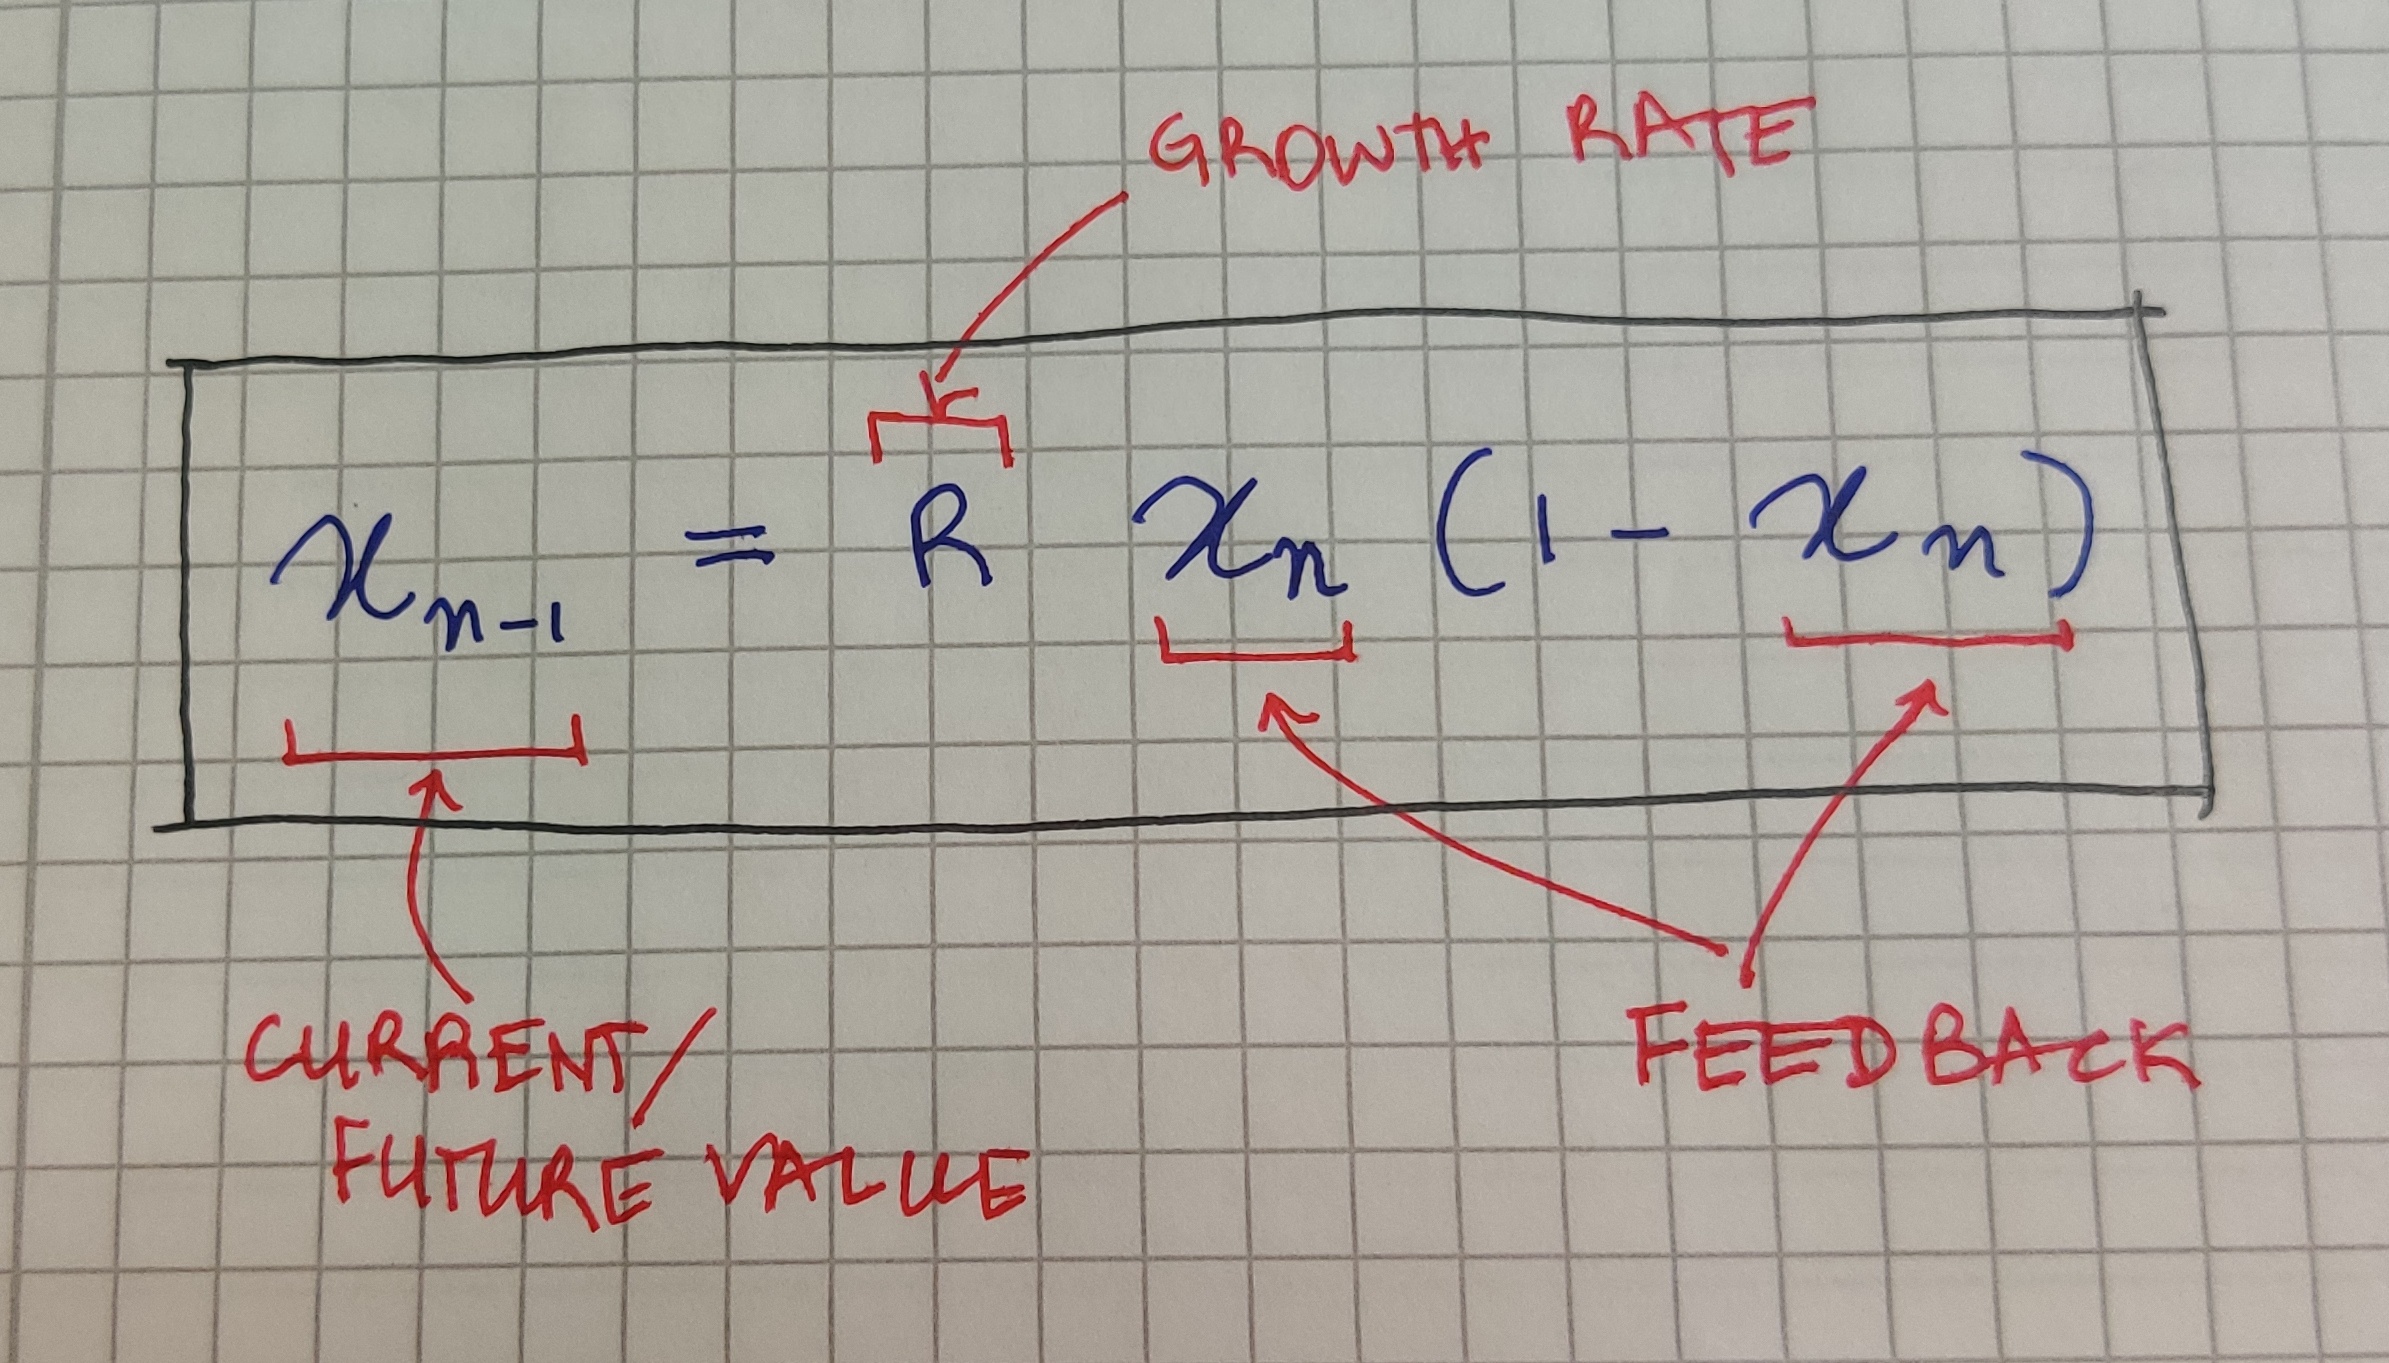 GROWTH RATE
x_{n-1} = R x_n (1 - x_n)
CURRENT/
FUTURE VALUE
FEEDBACK